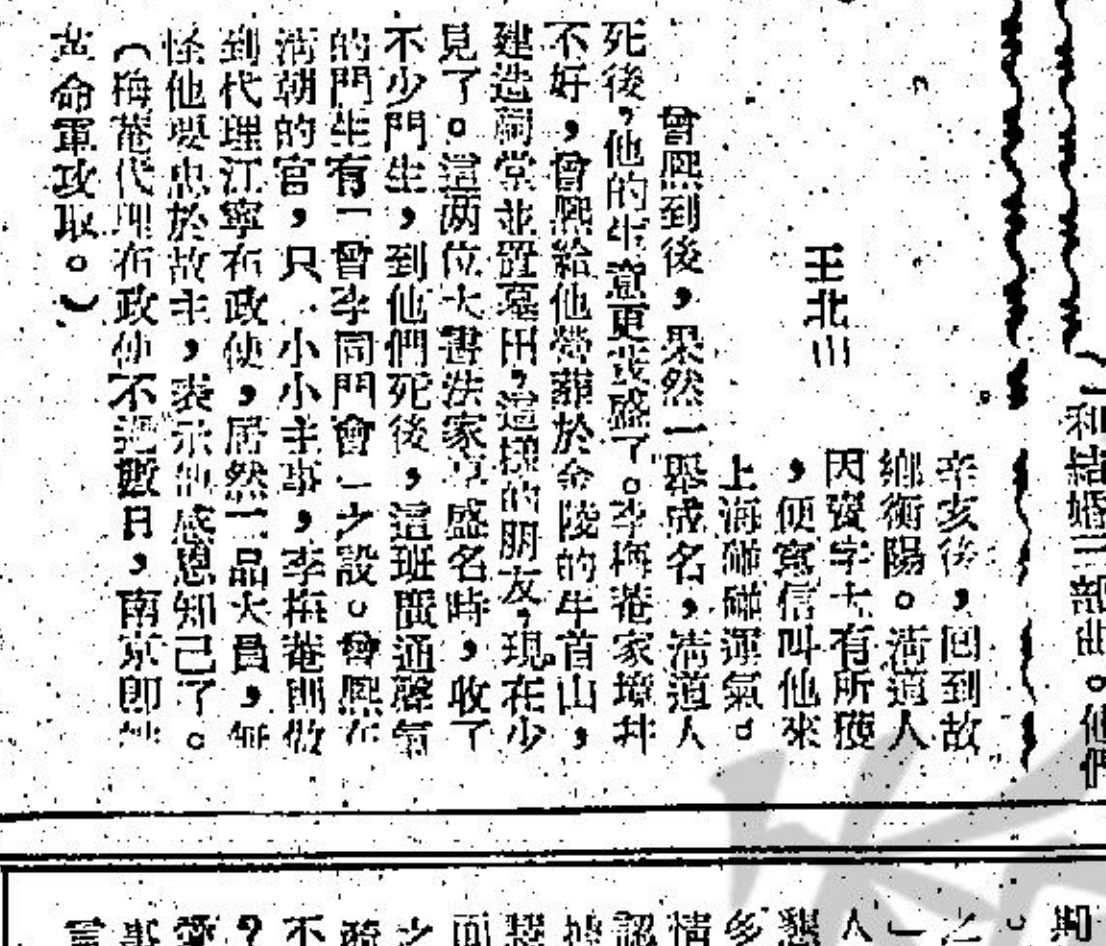 和結婚三部曲。他們
王北山
辛亥後，回到故
鄉衡陽。清道人
因賣字大有所獲
，便寫信叫他來
上海碰碰運氣。
曾熙到後，果然一舉成名，清道人
死後，他的生意更茂盛了。李梅菴家境并
不好，曾熙給他營葬於金陵的牛首山，
建造祠堂並置墓田，這樣的朋友，現在少
見了。這两位大書法家享盛名時，收了
不少門生，到他們死後，這班廣通聲氣
的門生有「曾李同門會」之設。曾熙在
清朝的官，只一小小主事，李梅菴則做
到代理江寧布政使，居然二品大員，無
怪他要忠於故主，表示他感恩知己了。
（梅菴代理布政使不過數日，南京即
革命軍攻取。）
期
。
之
」
人
懇
多
情
認
之
不
？
事